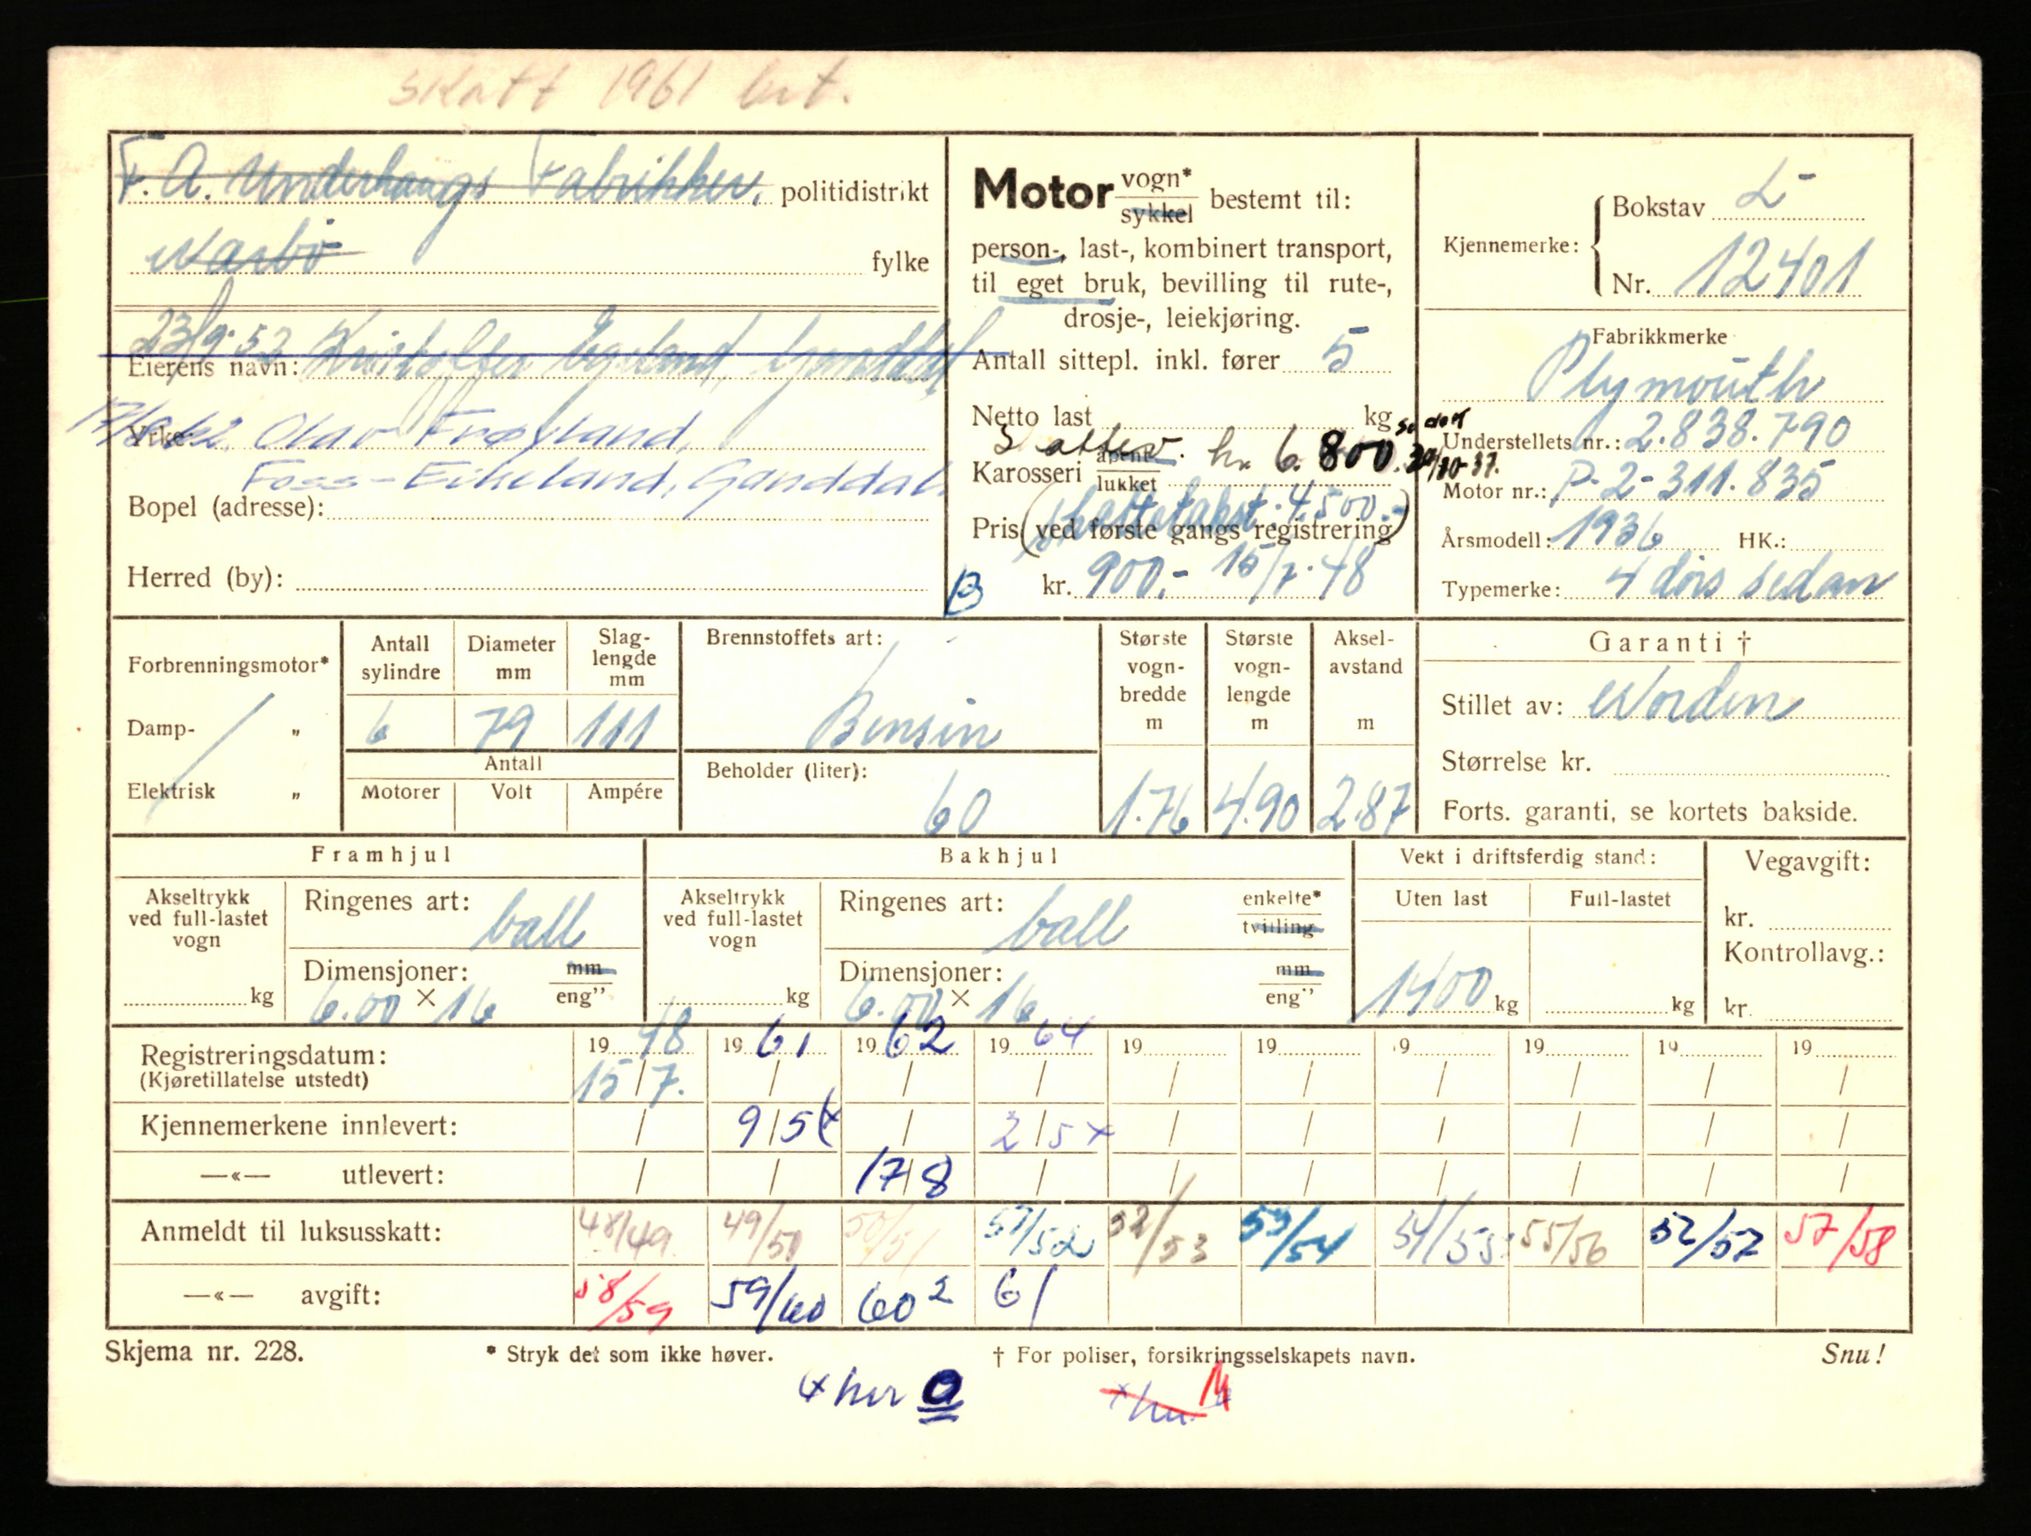 Skatt 1961 bet.
F. A. Underhaugs Fabrikker, politidistrikt
Nærbø fylke
23/9-52 Kristoffer Egeland, Ganddal
Eierens navn:
Yrke: Olav Frøyland,
Foss-Eikeland, Ganddal.
Bopel (adresse):
Herred (by):
Motor vogn* sykkel bestemt til:
person-, last-, kombinert transport,
til eget bruk, bevilling til rute-,
drosje-, leiekjøring.
Antall sittepl. inkl. fører 5
Netto last kg
kr. 6.800. 30/10-37.
Karosseri åpent lukket
skattetakst. 4.500.-
Pris (ved første gangs registrering)
B kr. 900.- 15/7-48
Kjennemerke: Bokstav L-
Nr. 12401
Fabrikkmerke
Plymouth
Understellets nr.: 2.838.790
Motor nr.: P-2-311.835
Årsmodell: 1936 HK.:
Typemerke: 4 dørs sedan
Forbrenningsmotor*
Damp- „
Elektrisk „
Antall sylindre Diameter mm Slag-lengde mm
6 79 111
Antall
Motorer Volt Ampére
Brennstoffets art:
Bensin
Beholder (liter):
60
Største vogn-bredde m Største vogn-lengde m Aksel-avstand m
1.76 4.90 2.87
Garanti †
Stillet av: Norden
Størrelse kr.
Forts. garanti, se kortets bakside.
Framhjul
Akseltrykk ved full-lastet vogn
kg
Ringenes art: ball
Dimensjoner: mm eng”
6.00 × 16
Bakhjul
Akseltrykk ved full-lastet vogn
kg
Ringenes art: ball enkelte* tvilling
Dimensjoner: mm eng”
6.00 × 16
Vekt i driftsferdig stand:
Uten last Full-lastet
1400 kg kg
Vegavgift:
kr.
Kontrollavg.:
kr.
Registreringsdatum: 1948 1961 1962 1964 19 19 19 19 19 19
(Kjøretillatelse utstedt) 15/7. / / / / / / / / /
Kjennemerkene innlevert: / 9/5 x / 2/5 x / / / / / /
—«— utlevert: / / 17/8 / / / / / / /
Anmeldt til luksusskatt: 48/49 49/50 50/51 51/52 52/53 53/54 54/55 55/56 52/57 57/58
—«— avgift: 58/59 59/60 60² 61
Skjema nr. 228. * Stryk det som ikke høver. † For poliser, forsikringsselskapets navn. Snu!
x her O